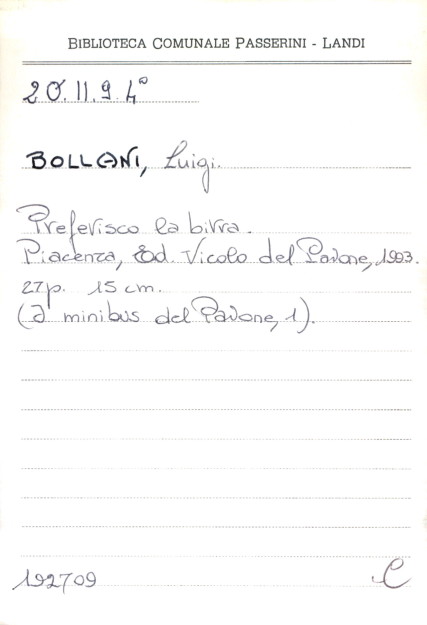 BIBLIOTECA COMUNALE PASSERINI - LANDI
20.II.9.4°
BOLLANI, Luigi.
Preferisco la birra.
Piacenza, Ed. Vicolo del Pavone, 1993.
27p. 15 cm.
(I minibus del Pavone, 1).
192709
C